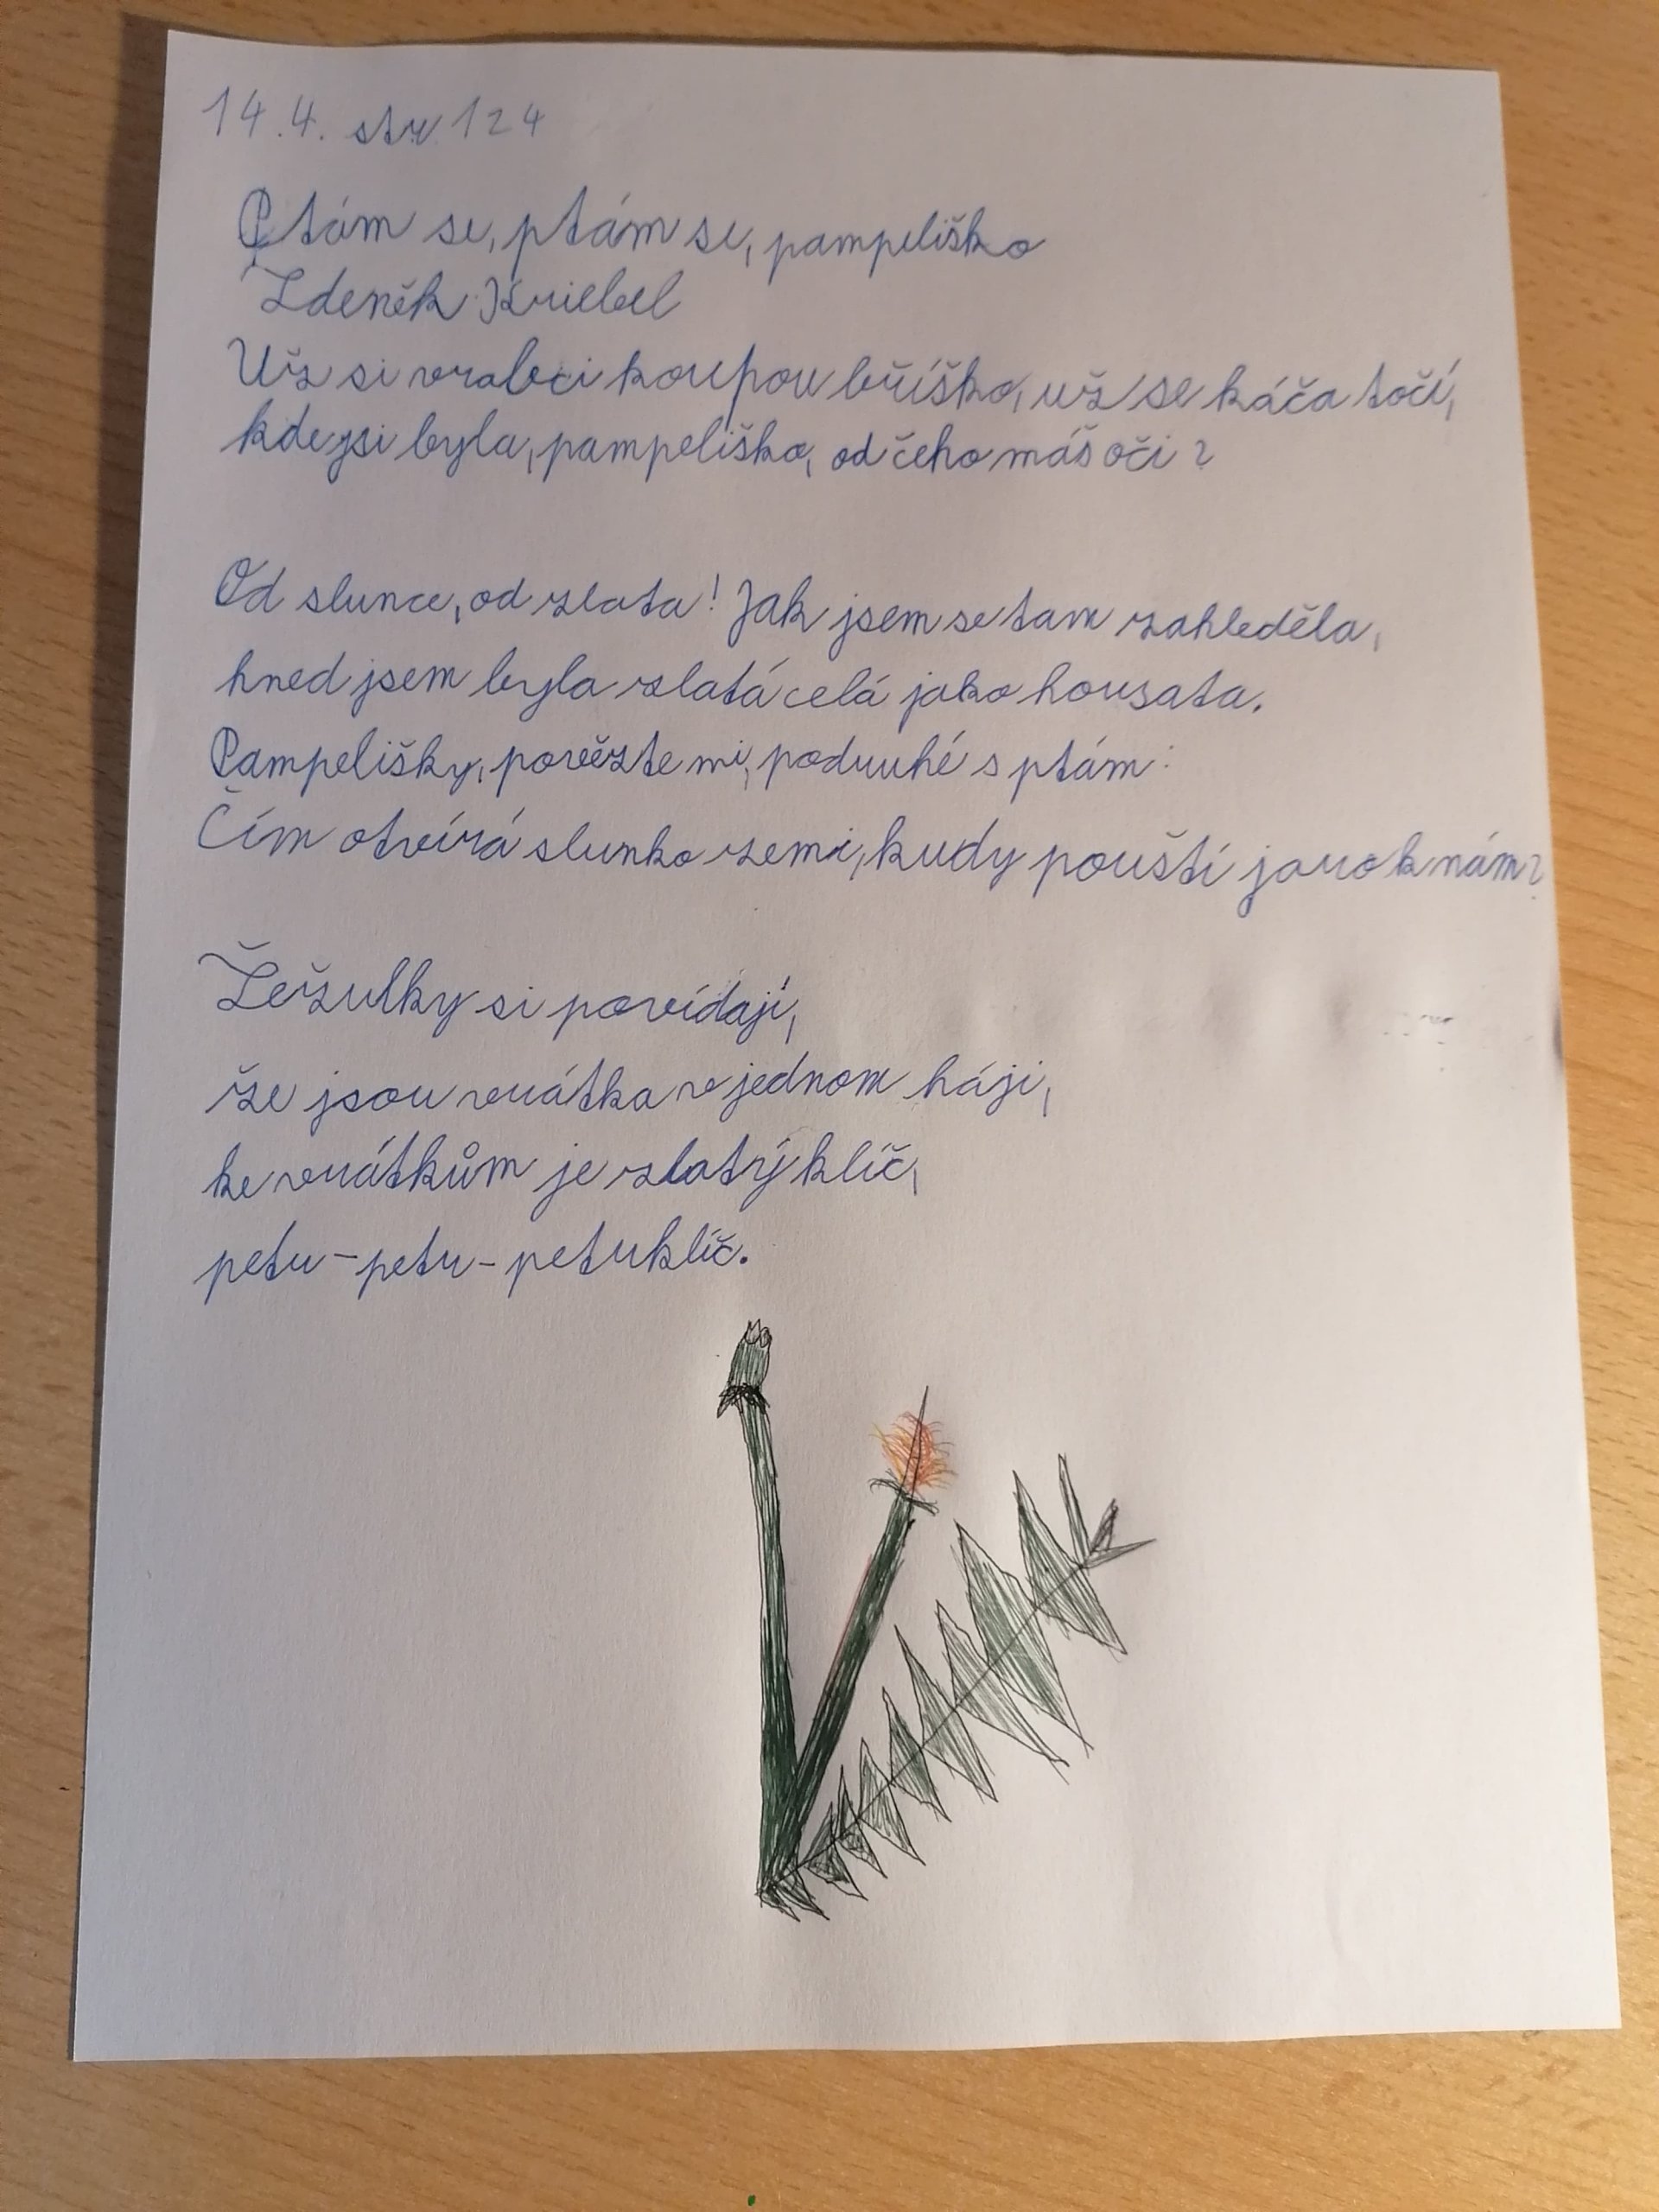 14.4. str. 124
Ptám se, ptám se, pampeliško
Zdeněk Kriebel
Už si vrabci koupou bříško, už se káča točí,
kde jsi byla, pampeliško, od čeho máš oči?
Od slunce, od zlata! Jak jsem se tam zahleděla,
hned jsem byla zlatá celá jako housata.
Pampelišky, povězte mi, podruhé s ptám:
Čím otvírá slunko zemi, kudy pouští jaro k nám?
Žežulky si povídají,
že jsou vrátka v jednom háji,
ke vrátkům je zlatý klíč,
petu-petu-petuklíč.